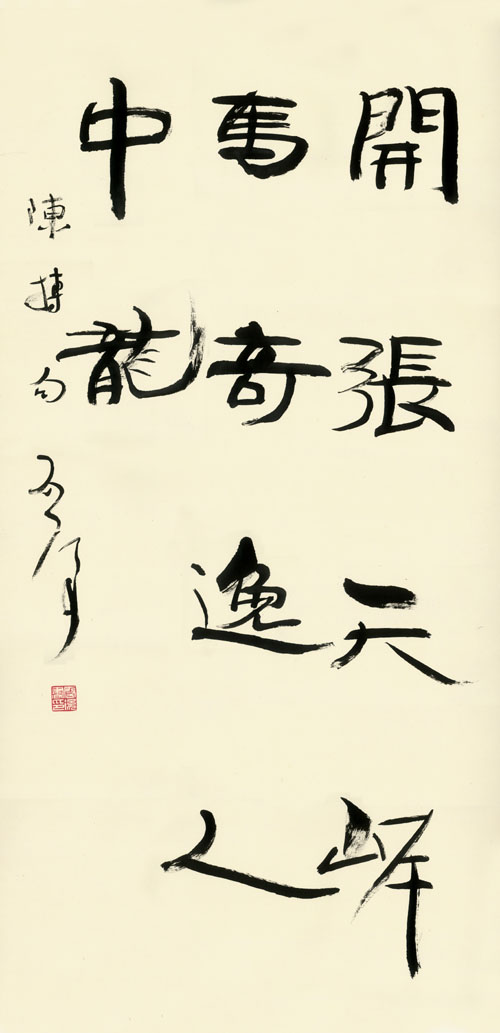 開張天岸
馬奇逸人
中龍
陳摶句